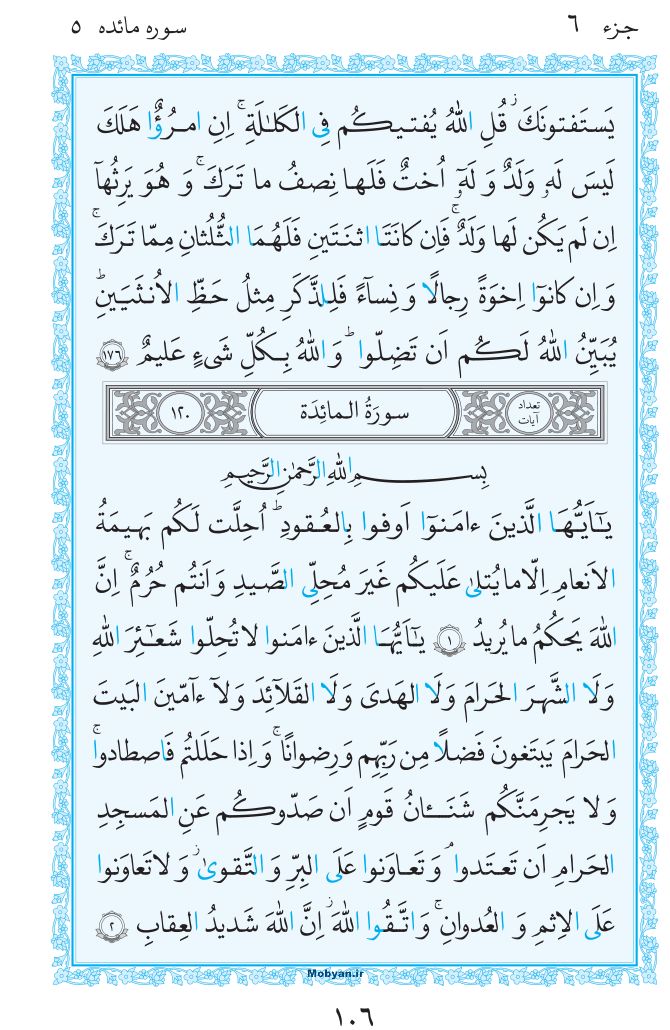 جزء ۶
سوره مائده ۵
يَستَفتونَكَ قُلِ اللهُ يُفتيكُم فِى الكَلـٰلَةِ ۚ اِنِ امرُؤٌا هَلَكَ
لَيسَ لَهٗ وَلَدٌ وَ لَهٗٓ اُختٌ فَلَها نِصفُ ما تَرَكَ ۚ وَ هُوَ يَرِثُهآ
اِن لَم يَكُن لَها وَلَدٌ ۚ فَاِن كانَتَا اثنَتَينِ فَلَهُمَا الثُّلُثانِ مِمّا تَرَكَ ۚ
وَ اِن كانوٓا اِخوَةً رِجالًا وَ نِسآءً فَلِلذَّكَرِ مِثلُ حَظِّ الاُنثَيَينِ ۗ
يُبَيِّنُ اللهُ لَكُم اَن تَضِلّوا ۗ وَ اللهُ بِكُلِّ شَىءٍ عَليمٌ ﴿۱۷۶﴾
تعداد آيات
سورَةُ المائِدَة
۱۲۰
بِسمِ اللهِ الرَّحمٰنِ الرَّحيمِ
يـٰٓاَيُّهَا الَّذينَ ءامَنوٓا اَوفوا بِالعُقودِ ۚ اُحِلَّت لَكُم بَهيمَةُ
الاَنعامِ اِلّا ما يُتلىٰ عَلَيكُم غَيرَ مُحِلِّى الصَّيدِ وَ اَنتُم حُرُمٌ ۗ اِنَّ
اللهَ يَحكُمُ ما يُريدُ ﴿۱﴾ يـٰٓاَيُّهَا الَّذينَ ءامَنوا لا تُحِلّوا شَعـٰٓئِرَ اللهِ
وَلَا الشَّهرَ الحَرامَ وَلَا الهَدىَ وَلَا القَلآئِدَ وَلآ ءآمّينَ البَيتَ
الحَرامَ يَبتَغونَ فَضلًا مِن رَبِّهِم وَ رِضوانًا ۚ وَ اِذا حَلَلتُم فَاصطادوا ۚ
وَلا يَجرِمَنَّكُم شَنَـٔانُ قَومٍ اَن صَدّوكُم عَنِ المَسجِدِ
الحَرامِ اَن تَعتَدوا ۘ وَ تَعاوَنوا عَلَى البِرِّ وَ التَّقوىٰ ۖ وَ لا تَعاوَنوا
عَلَى الاِثمِ وَ العُدوانِ ۚ وَ اتَّقُوا اللهَ ۖ اِنَّ اللهَ شَديدُ العِقابِ ﴿۲﴾
Mobyan.ir
۱۰۶